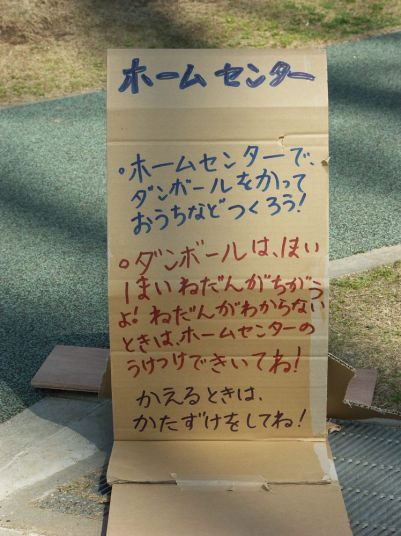 ホームセンター
・ホームセンターで、
ダンボールをかって
おうちなどつくろう!
・ダンボールは、1まい
1まいねだんがちがう
よ!ねだんがわからない
ときは、ホームセンターの
うけつけできいてね!
かえるときは、
かたずけをしてね!